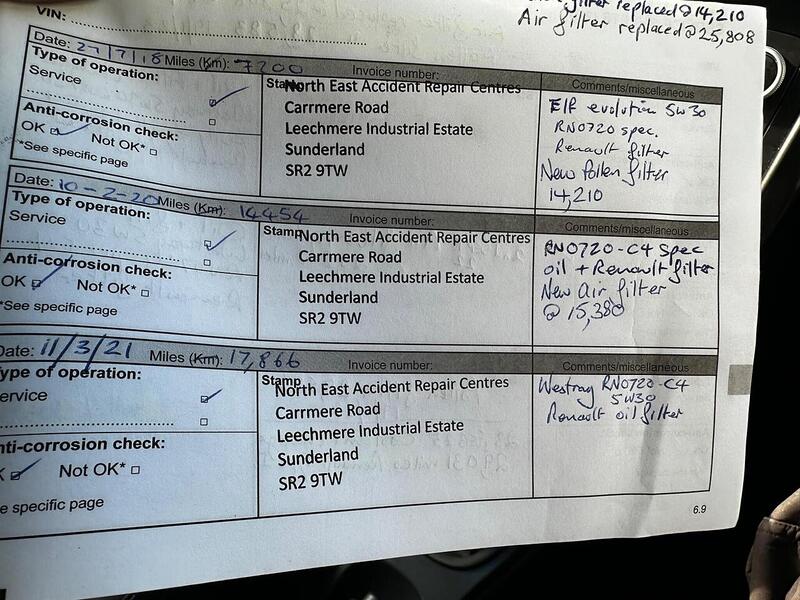 filter replaced @ 14,210
Air filter replaced @ 25,808
VIN:
Date: 27/7/18 Miles (Km): 7200 Invoice number: Comments/miscellaneous
Type of operation:
Service
Anti-corrosion check:
OK Not OK*
*See specific page
Stamp
North East Accident Repair Centres
Carrmere Road
Leechmere Industrial Estate
Sunderland
SR2 9TW
Elf evolution 5W30
RN0720 spec.
Renault filter
New Pollen filter
14,210
Date: 10-2-20 Miles (Km): 14454 Invoice number: Comments/miscellaneous
Type of operation:
Service
Anti-corrosion check:
OK Not OK*
*See specific page
Stamp
North East Accident Repair Centres
Carrmere Road
Leechmere Industrial Estate
Sunderland
SR2 9TW
RN0720-C4 Spec
oil + Renault filter
New Air filter
@ 15,380
Date: 11/3/21 Miles (Km): 17,866 Invoice number: Comments/miscellaneous
ype of operation:
ervice
nti-corrosion check:
K Not OK*
e specific page
Stamp
North East Accident Repair Centres
Carrmere Road
Leechmere Industrial Estate
Sunderland
SR2 9TW
Westray RN0720-C4
5W30
Renault oil filter
6.9